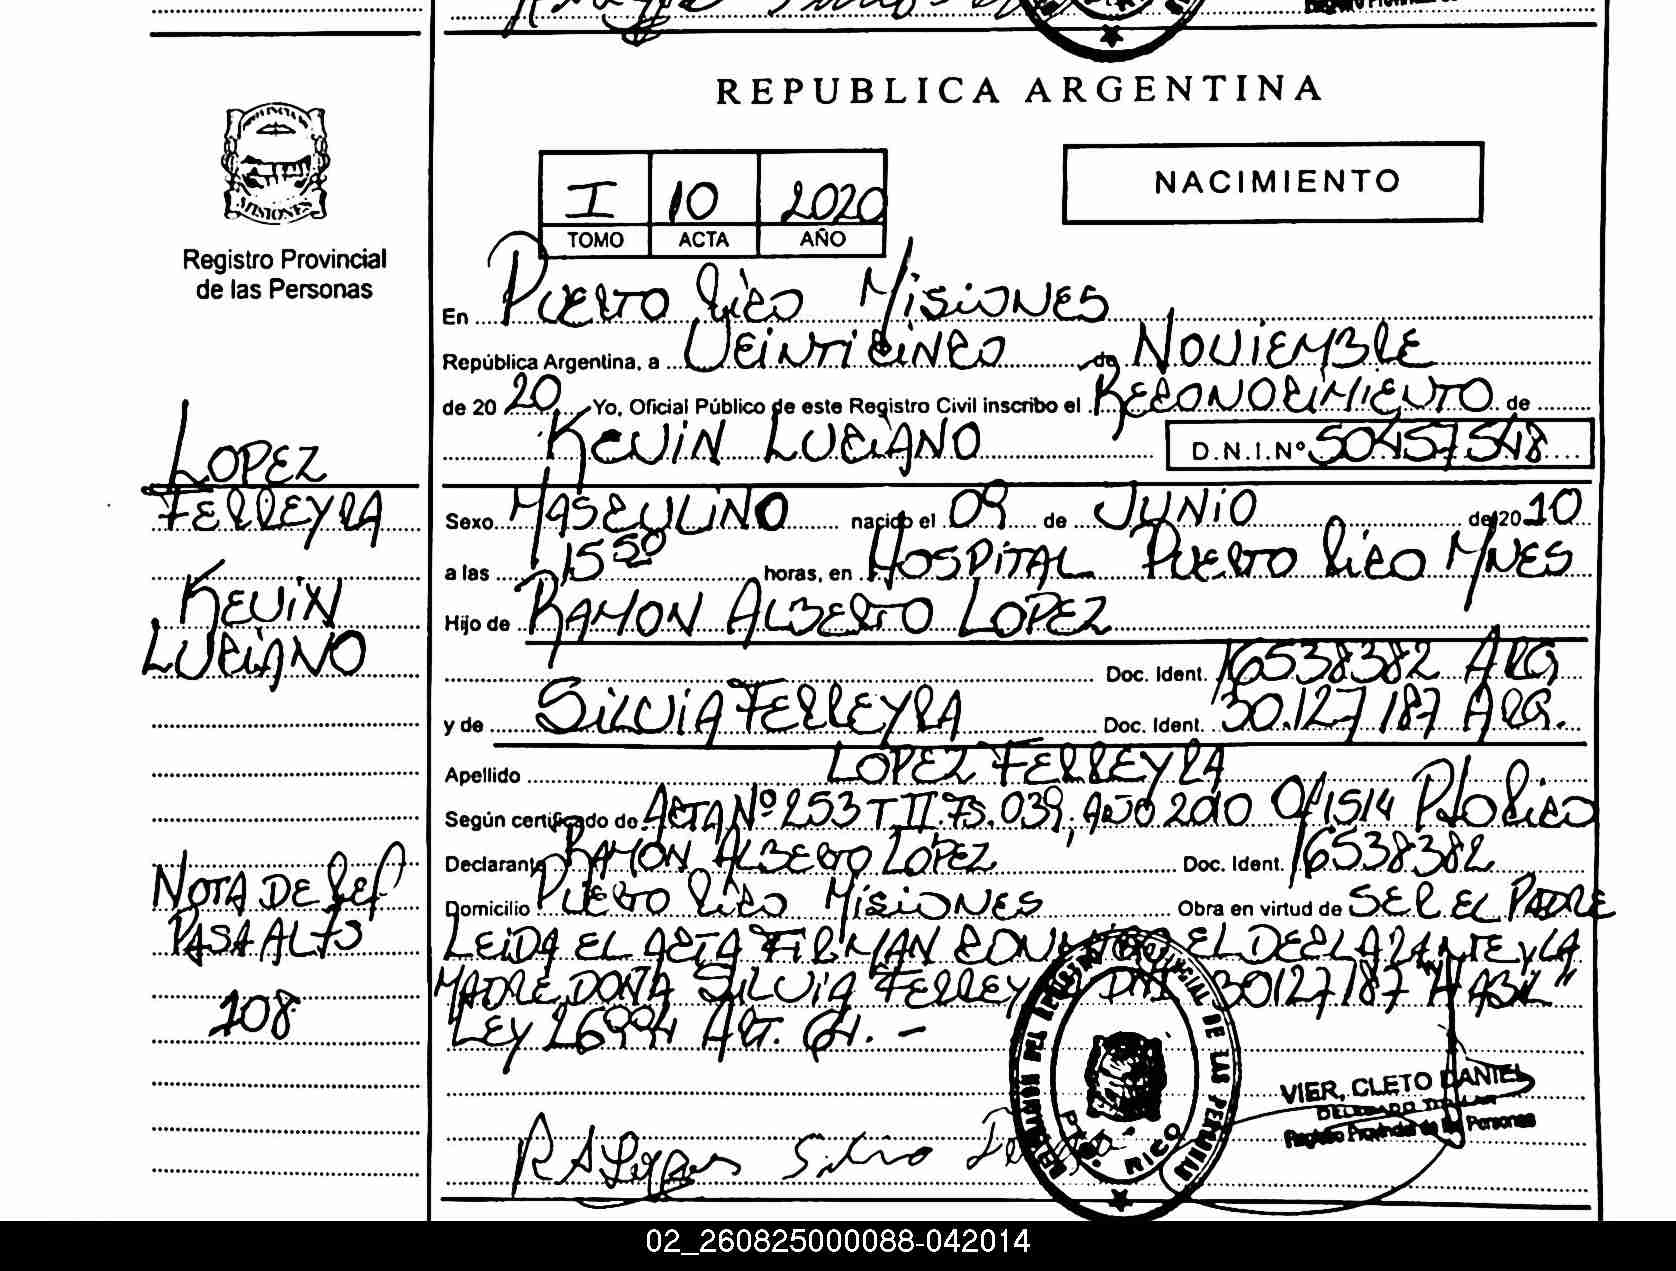 REPUBLICA ARGENTINA
PROVINCIA DE
MISIONES
Registro Provincial
de las Personas
I 10 2020
TOMO ACTA AÑO
NACIMIENTO
En PUERTO RICO MISIONES
República Argentina, a VEINTICINCO de NOVIEMBRE
de 20 20 Yo, Oficial Público de este Registro Civil inscribo el RECONOCIMIENTO de
KEVIN LUCIANO D.N.I.Nº 50457548
LOPEZ
FERREYRA
KEVIN
LUCIANO
Sexo MASCULINO nacido el 09 de JUNIO de 20 10
a las 15 50 horas, en HOSPITAL PUERTO RICO MNES
Hijo de RAMON ALBERTO LOPEZ
Doc. Ident. 16538382 ARG
y de SILVIA FERREYRA Doc. Ident. 30.127187 ARG.
Apellido LOPEZ FERREYRA
Según certificado de ACTA Nº 253 T II. FS. 039, AÑO 2010 Of 1514 Pto RICO
Declarante RAMON ALBERTO LOPEZ Doc. Ident. 16538382
Domicilio PUERTO RICO MISIONES Obra en virtud de SER EL PADRE
LEIDA EL ACTA FIRMAN CONMIGO EL DECLARANTE Y LA
MADRE DOÑA SILVIA FERREYRA DNI 30127187 "HABIL"
LEY 26994 ART. 64. -
NOTA DE REF
PASA AL FS
108
PTO. RICO
VIER, CLETO DANIEL
DELEGADO TITULAR
Registro Provincial de las Personas
02_260825000088-042014